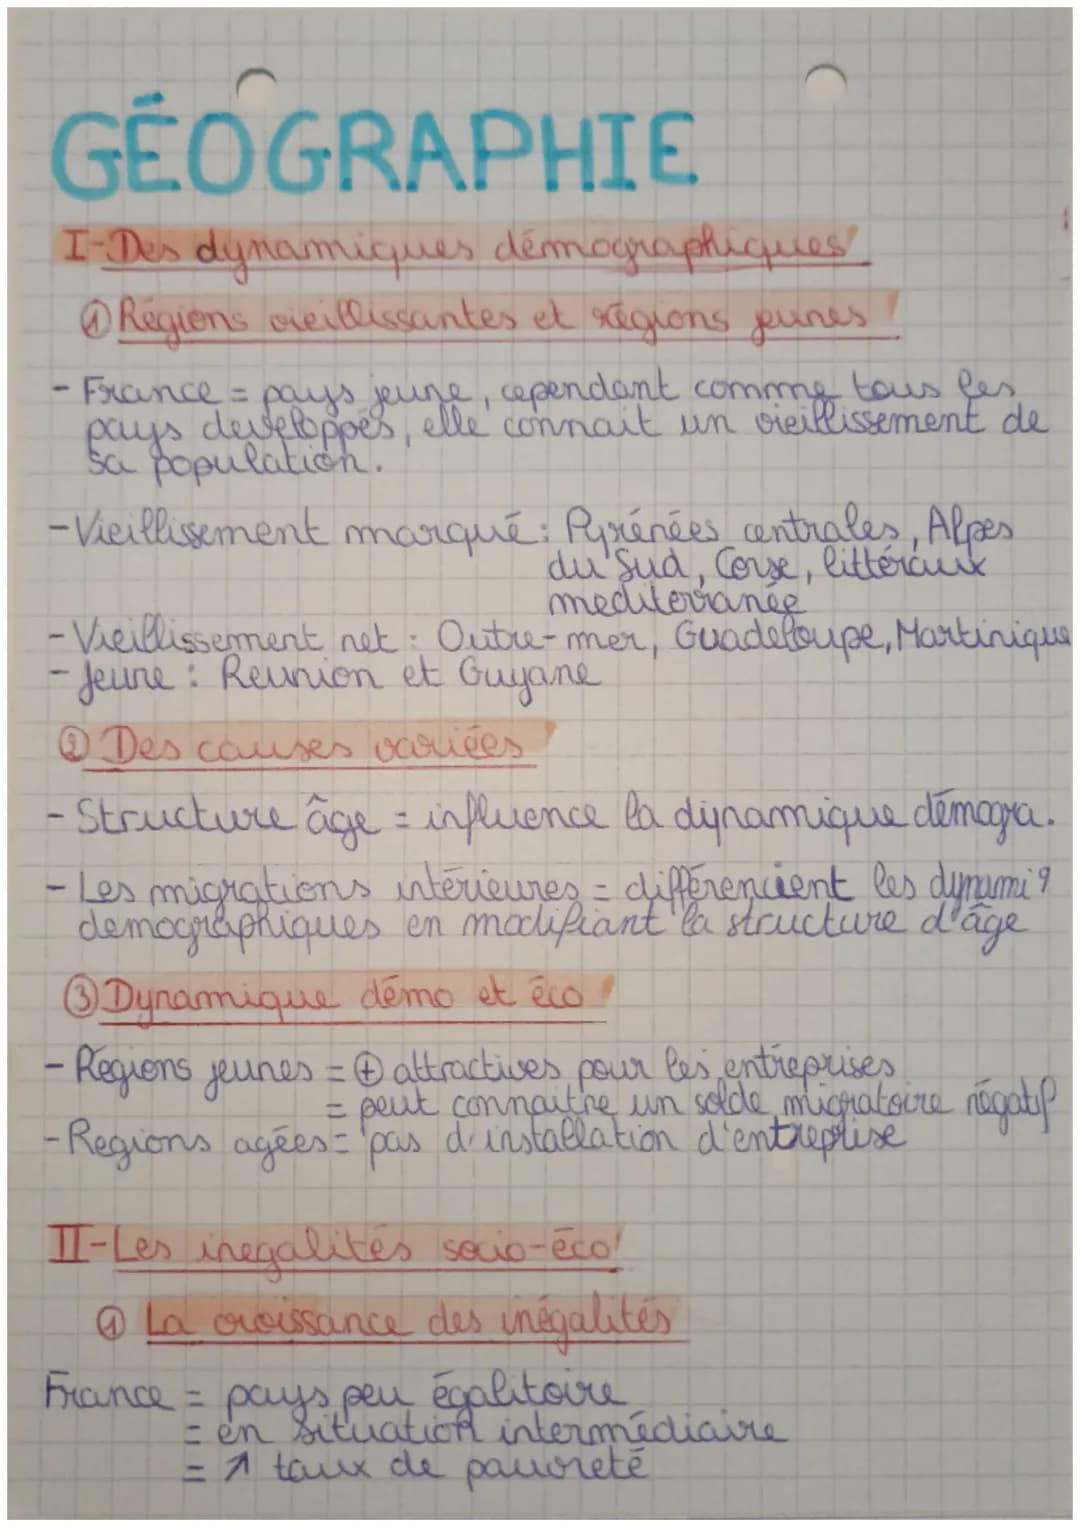 GÉOGRAPHIE
I-Des dynamiques démographiques
① Régions vieillissantes et régions jeunes
- France = pays jeune, cependant comme tous les
pays developpés, elle connait un vieillissement de
sa population.
- Vieillissement marqué : Pyrénées centrales, Alpes
du Sud, Corse, littéraux
mediterranée
- Vieillissement net : Outre-mer, Guadeloupe, Martinique
- Jeune : Reunion et Guyane
② Des causes variées
- Structure âge = influence la dynamique démogra.
- Les migrations intérieures = différencient les dynamiq
demographiques en modifiant la structure d'âge
③ Dynamique démo et éco
- Régions jeunes = ⊕ attractives pour les entreprises
= peut connaitre un solde migratoire négatif
- Regions agées = pas d'installation d'entreprise
II-Les inegalités socio-éco
① La croissance des inégalités
France = pays peu égalitoire
= en situation intermédiaire
= ↗ taux de pauvreté